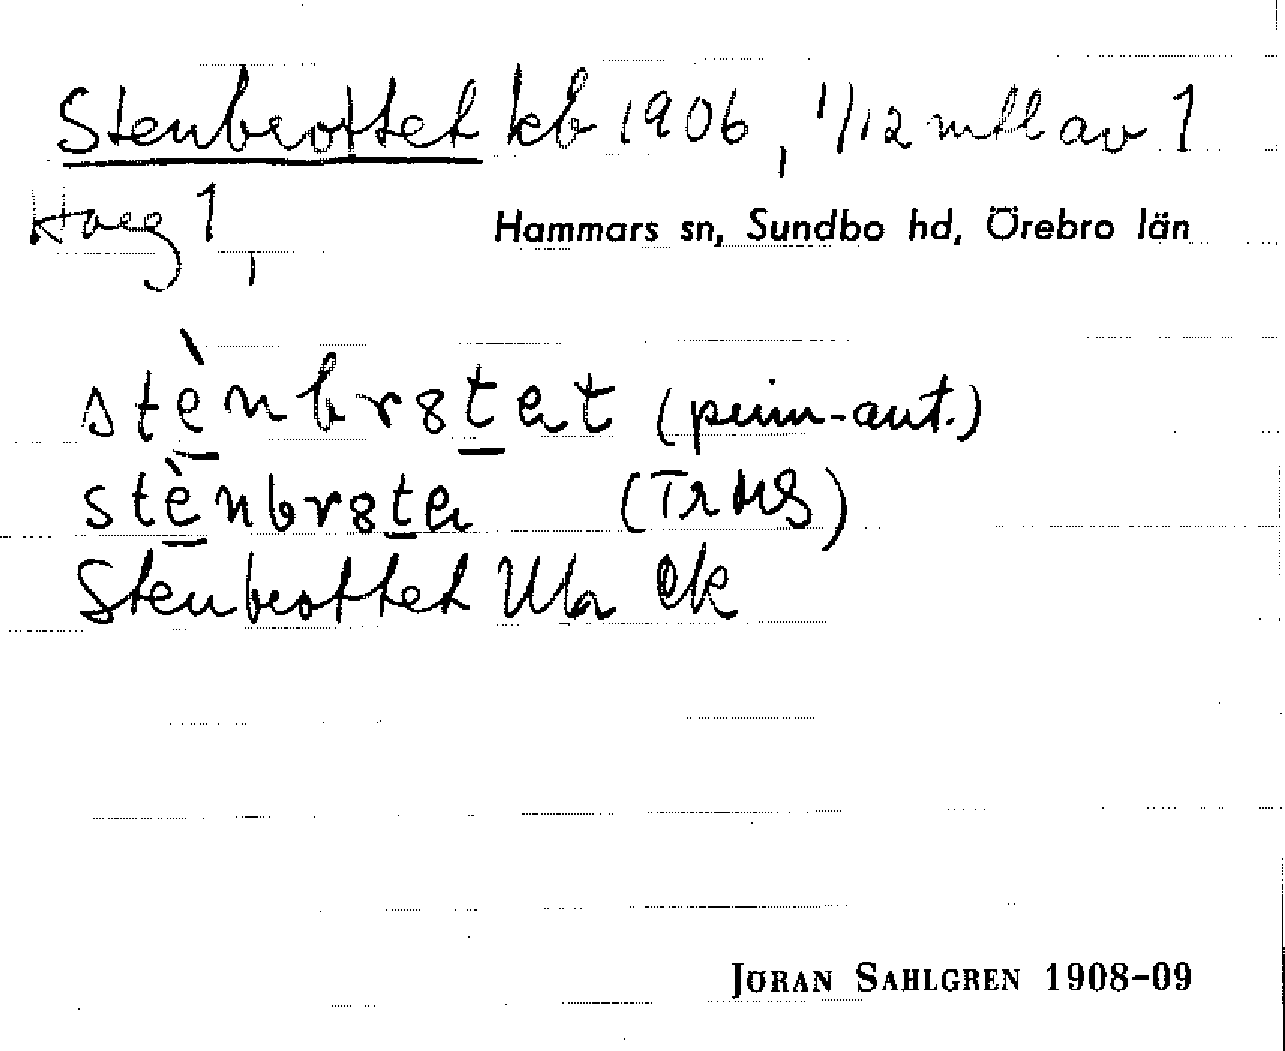 Stenbrottet kb 1906, 1/12 mtl av 1
Haeg 1,
Hammars sn, Sundbo hd, Örebro län
stènbrɞtət (prim-ant.)
stènbrɞtə (TrMS)
Stenbrottet Ula ek
JÖRAN SAHLGREN 1908-09